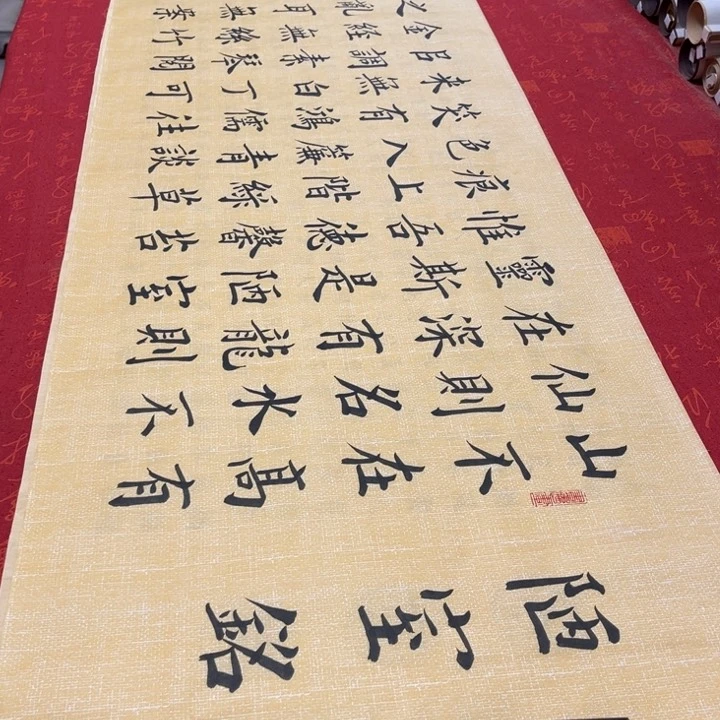 陋室銘
山不在高有
仙則名水不
在深有龍則
靈斯是陋室
惟吾德馨苔
痕上階綠草
色入簾青談
笑有鴻儒往
来無白丁可
㠯調素琴閱
金經無絲竹
之亂耳無案